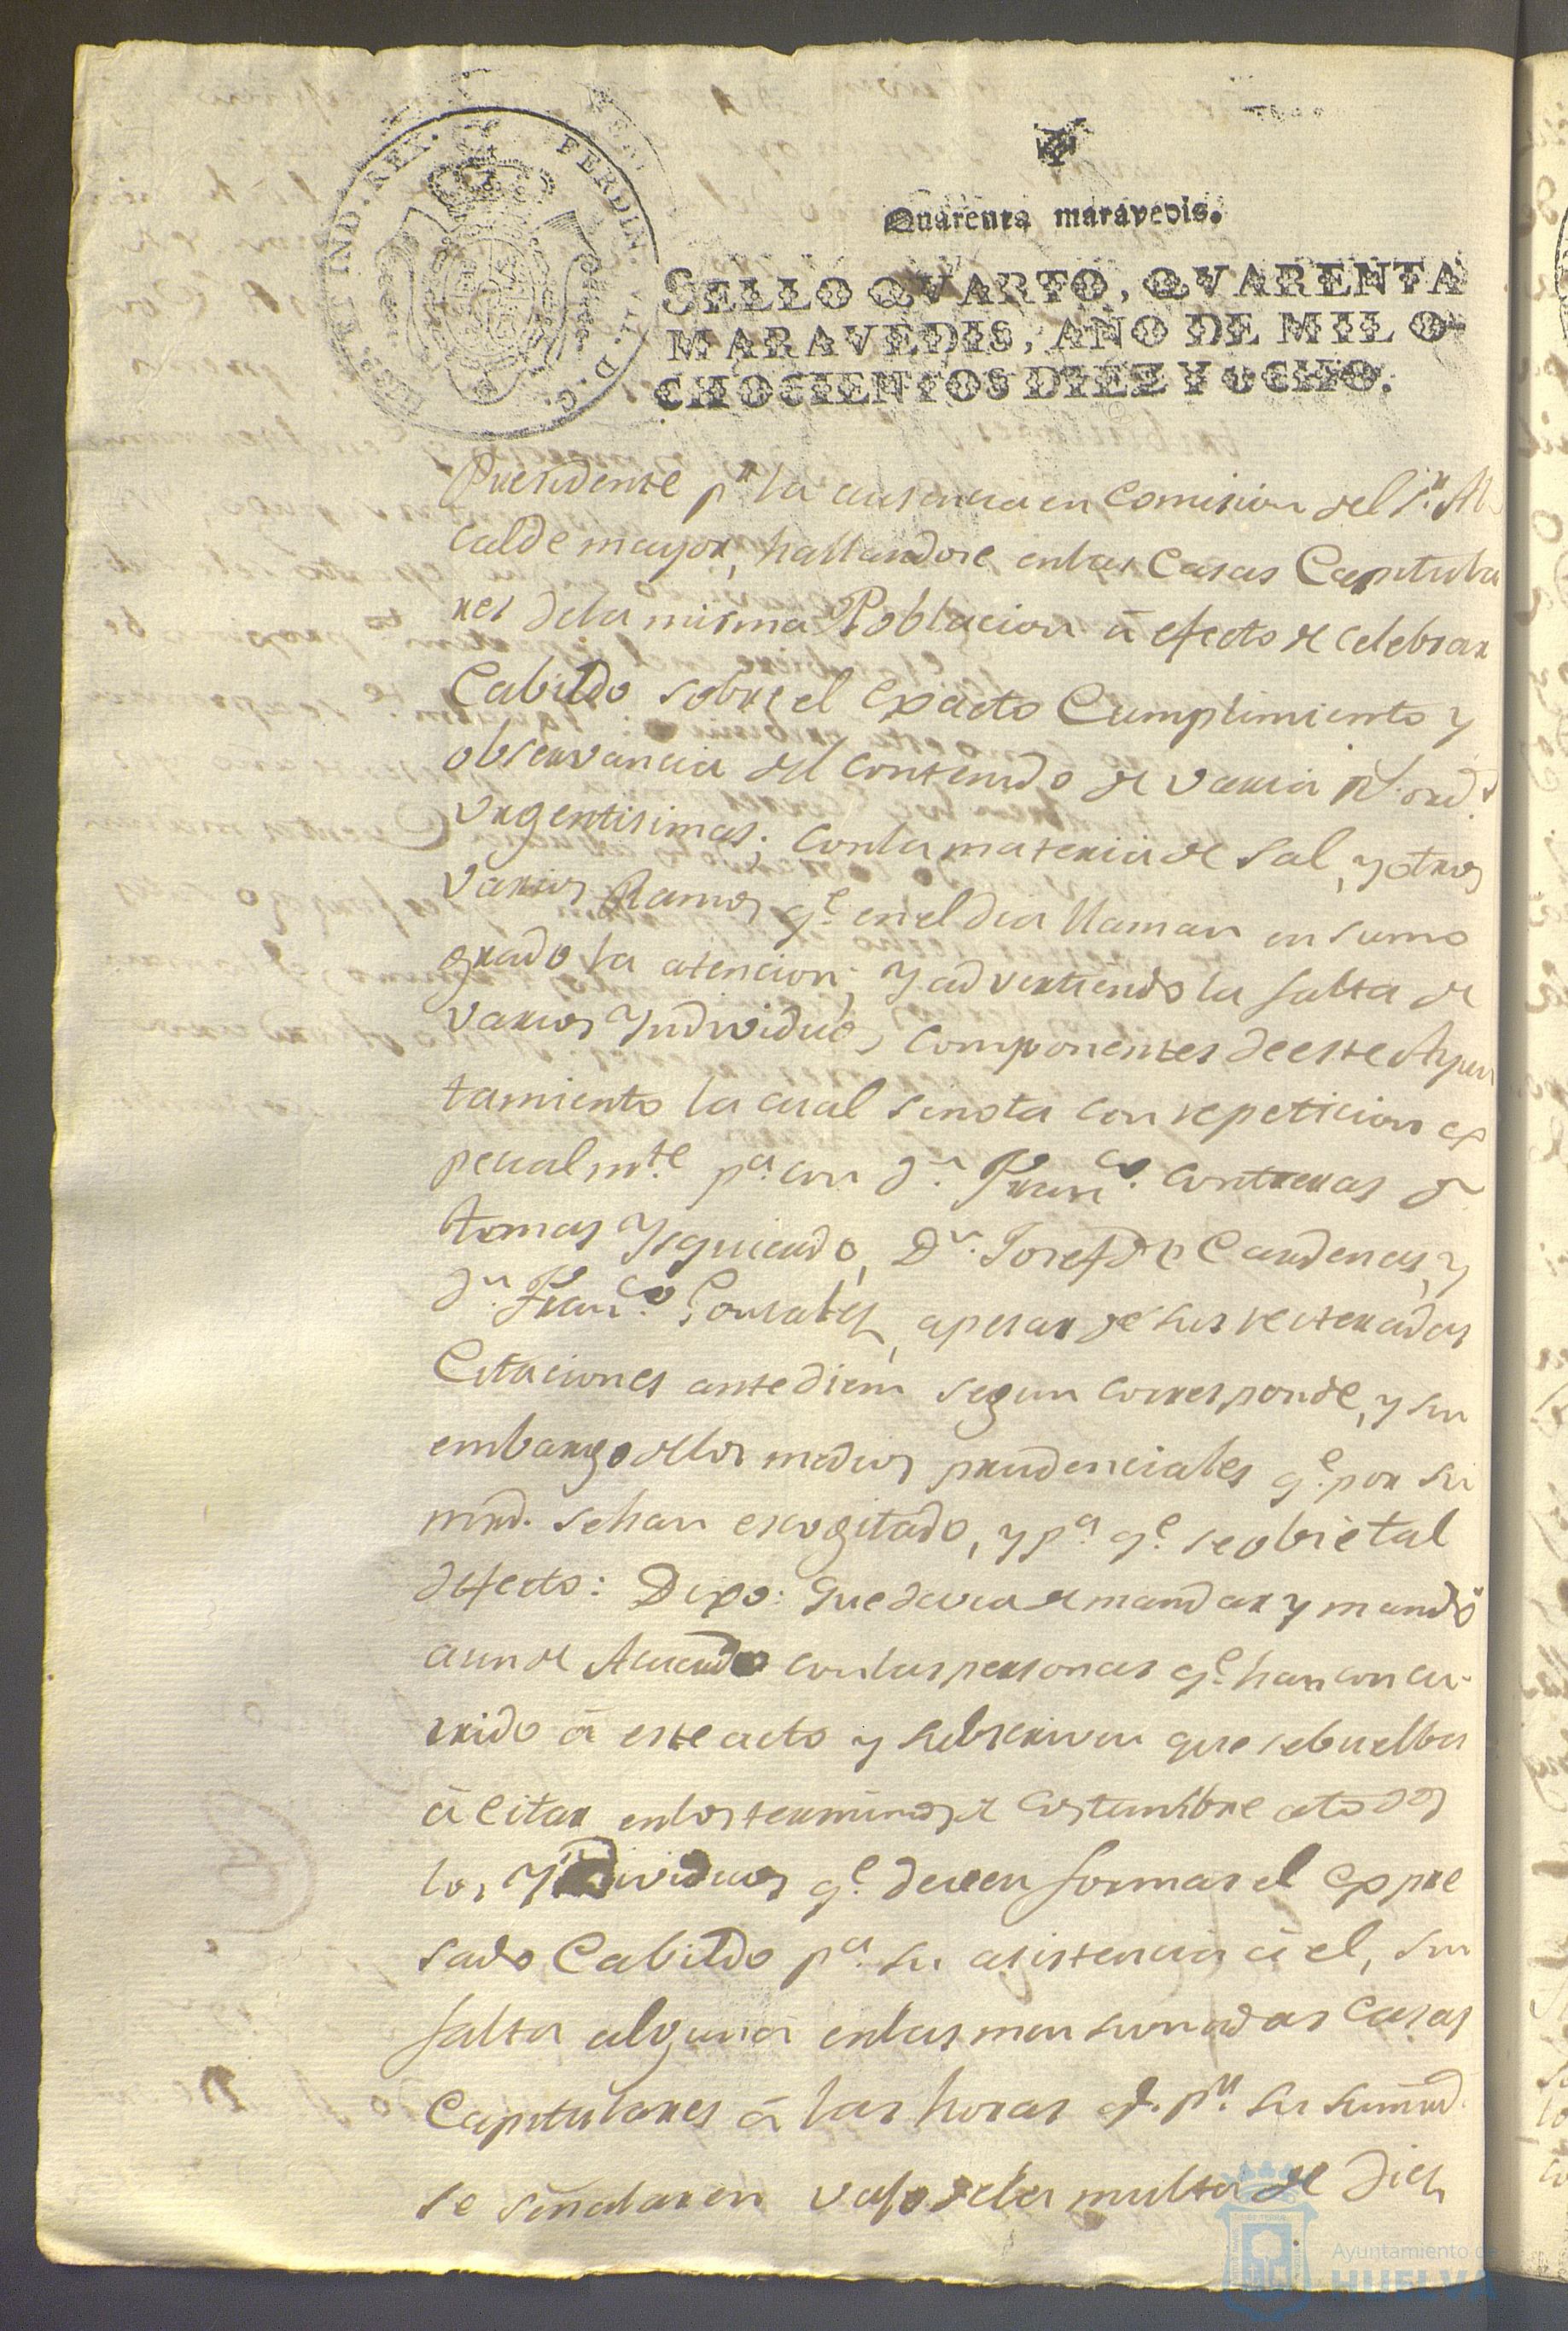 HISP. ET IND. REX. FERDIN. VII. D. G.
Quarenta maravedis.
SELLO QVARTO, QVARENTA
MARAVEDIS, AÑO DE MIL O-
CHOCIENTOS DIEZ Y OCHO.
Presidente pr. la ausencia en Comision del Sr. Al
calde mayor, hallandose enlas Casas Capitula
res dela misma Poblacion á efecto de celebrar
Cabildo sobre el Exacto Cumplimiento y
observancia del contenido de varia Rs. ords.
Urgentisimas; conla materia de sal, y otros
varios Ramos qe. enel dia llaman en sumo
grado la atencion; y advirtiendo la falta de
varios Yndividuos componentes de este Ayun
tamiento la cual senota con repeticion es
pecialmte. pa. con Dn. Franco. Contreras Dn.
tomas Ysquierdo, Dn. Josef de Cardenas, y
Dn. Franco. Gonzalez, apesar de sus reiteradas
Citaciones antediem segun corresponde, y sin
embargo delos medios prudenciales qe. por su
mrd. sehan escogitado, y pa. qe. se obie tal
defecto: Dixo: Que devia de mandar y mandó
aun de Acuerdo conlas personas qe. han concu-
rrido á este acto y subscriven que sebuelba
á citar enlos terminos de costumbre atodos
los Yndividuos qe. deven formar el expre
sado Cabildo pa. su asistencia á el, sin
falta alguna enlas mensionadas Casas
Capitulares á las horas qe. pr. su sumrd.
se señalaren vajo dela multa de diez
Ayuntamiento de
HUELVA